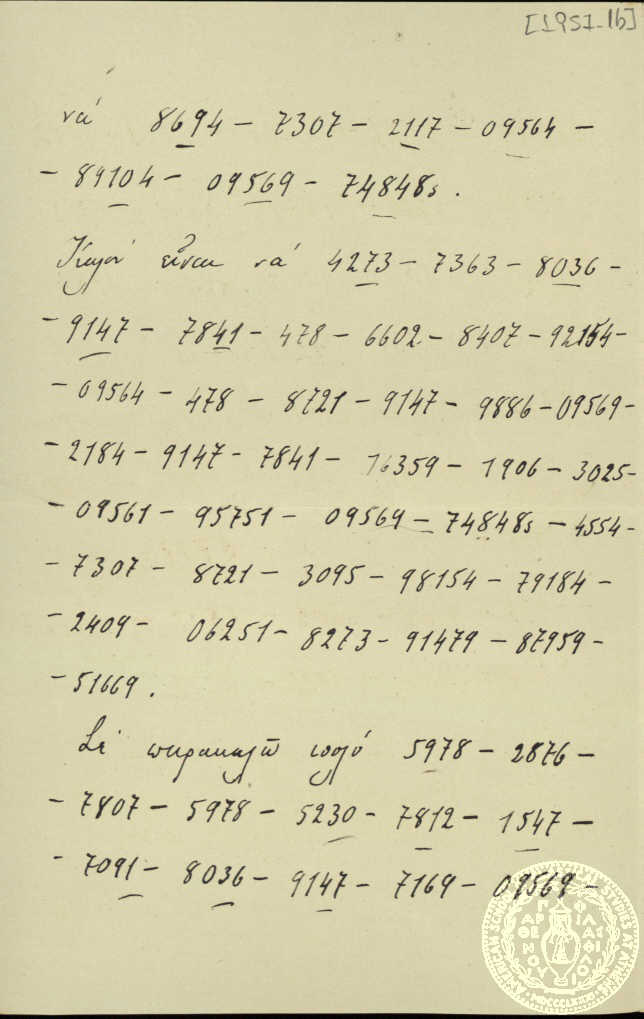 [1951-16]
νά 8694 - 7307 - 2117 - 09564 -
- 89104 - 09569 - 74848s.
Καλόν εἶναι νά 4273 - 7363 - 8036 -
- 9147 - 7841 - 478 - 6602 - 8407 - 92154 -
- 09564 - 478 - 8721 - 9147 - 9886 - 09569 -
- 2184 - 9147 - 7841 - 16359 - 1906 - 3025 -
- 09561 - 95751 - 09569 - 74848s - 4554 -
- 7307 - 8721 - 3095 - 98154 - 79184 -
- 2409 - 06251 - 8273 - 91479 - 87959 -
- 51669.
Σέ παρακαλῶ πολύ 5978 - 2876 -
- 7807 - 5978 - 5230 - 7812 - 1547 -
- 7091 - 8036 - 9147 - 7169 - 09569 -
AMERICAN SCHOOL OF CLASSICAL STUDIES AT ATHENS
MDCCCLXXXI